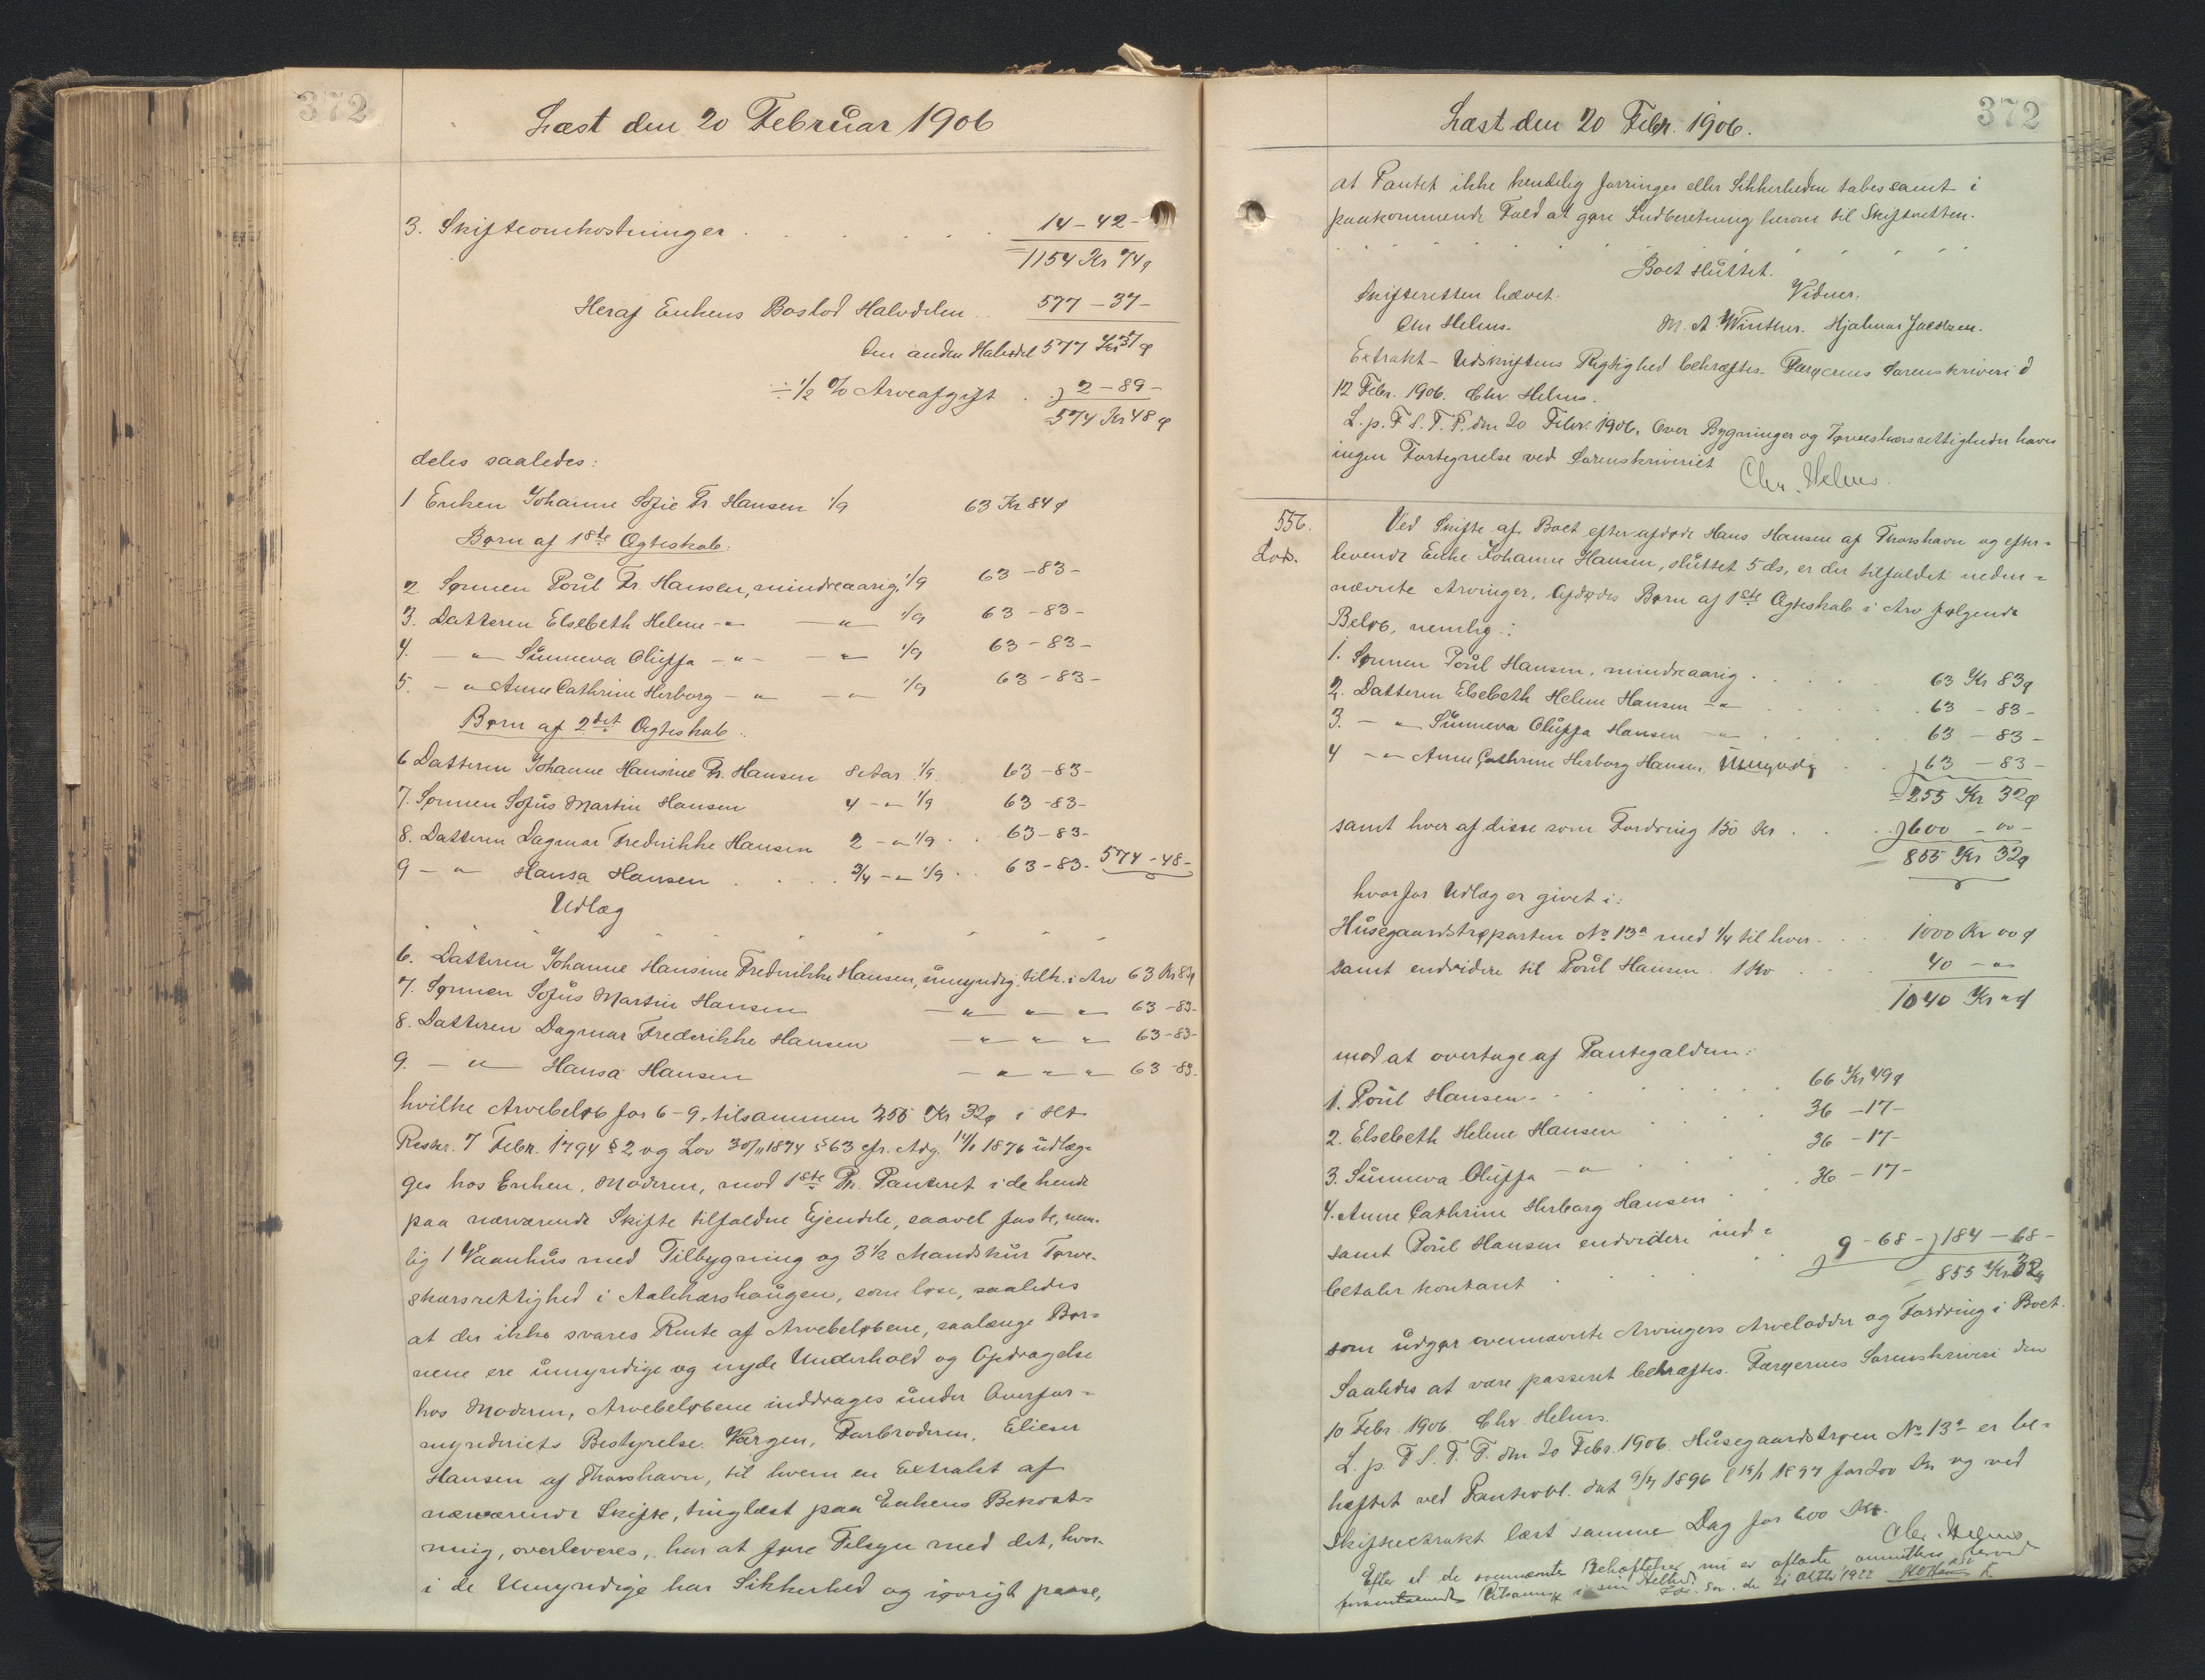 372
Læst den 20 Februar 1906
3. Skifteomkostninger . . . . . . 14 – 42 –
1154 Kr 74 ø
Heraf Enkens Boslod Halvdelen .. 577 – 37 –
Den anden Halvdel 577 Kr 37 ø
÷ ½ % Arveafgift . 2 – 89 –
574 Kr 48 ø
deles saaledes:
1 Enken Johanne Sofie Fr. Hansen 1/9 63 Kr 84 ø
Børn af 1ste Ægteskab:
2. Sønnen Poul Fr. Hansen, mindreaarig, 1/9 63 – 83 –
3. Datteren Elsebeth Helene – " – " – 1/9 63 – 83 –
4. – " – Sunneva Oluffa – " – – " – 1/9 63 – 83 –
5. – " – Anne Cathrine Herborg – " – – " – 1/9 63 – 83 –
Børn af 2det Ægteskab:
6 Datteren Johanne Hansine Fr. Hansen 8 Aar 1/9 63 – 83 –
7. Sønnen Sofus Martin Hansen 4 – " – 1/9 63 – 83 –
8. Datteren Dagmar Frederikke Hansen 2 – " – 1/9 . . 63 – 83 –
9 – " – Hansa Hansen . . . . 3/4 – " – 1/9 . . 63 – 83 – 574 – 48 –
Udlæg
6. Datteren Johanne Hansine Frederikke Hansen, umyndig, tilk. i Arv 63 Kr 83 ø
7. Sønnen Sofus Martin Hansen – " – " – " – 63 – 83 –
8. Datteren Dagmar Frederikke Hansen – " – " – " – 63 – 83 –
9. – " – Hansa Hansen – " – " – " – 63 – 83 –
hvilke Arvebeløb for 6 – 9, tilsammen 255 Kr 32 ø i Hht
Reskr. 7 Febr. 1794 § 2 og Lov 30/11 1874 § 63 cfr. Adg. 1876 udlæg-
ges hos Enken, Moderen, mod 1ste Pr. Panteret i de hende
paa nærværende Skifte tilfaldne Ejendele, saavel faste, nem-
lig 1 Vaanhus med Tilbygning og 3½ Mandskur Tørve-
skærsrettighed i Aalekærshaugen, som løse, saaledes
at der ikke svares Rente af Arvebeløbene, saalænge Bør-
nene ere umyndige og nyde Underhold og Opdragelse
hos Moderen, Arvebeløbene inddrages under Overfor-
mynderiets Bestyrelse. Værgen, Farbroderen, Elieser
Hansen af Thorshavn, til hvem en Extrakt af
nærværende Skifte, tinglæst paa Enkens Bekost-
ning, overleveres, har at føre Tilsyn med det, hvor-
i de Umyndige har Sikkerhed og iøvrigt passe,
372
Læst den 20 Febr. 1906.
at Pantet ikke kendelig forringes eller Sikkerheden tabes samt i
paakommende Fald at gøre Indberetning herom til Skifteretten.
Boet sluttet.
Skifteretten hævet. Vidner,
Chr Helms. M. A. Winther. Hjalmar Jacobsen.
Extrakt – Udskriftens Rigtighed bekræftes. Færøernes Sorenskriveri d
12 Febr. 1906. Chr. Helms.
L. p. F. S. T. P. den 20 Febr. 1906. Over Bygninger og Tørveskærsrettigheder haves
ingen Fortegnelse ved Sorenskriveriet
Chr. Helms.
556. Ved Skifte af Boet efter afdøde Hans Hansen af Thorshavn og efter-
levende Enke Johanne Hansen, sluttet 5 ds, er der tilfaldet neden-
nævnte Arvinger, Afdødes Børn af 1ste Ægteskab i Arv følgende
Beløb, nemlig:
1. Sønnen Poul Hansen, mindreaarig . . . . . 63 Kr 83 ø
2. Datteren Elsebeth Helene Hansen – " – . . . . 63 – 83 –
3. – " – Sunneva Oluffa Hansen – " – . . . . . 63 – 83 –
4 – " – Anne Cathrine Herborg Hansen, Umyndig . . 63 – 83 –
255 Kr 32 ø
samt hver af disse som Fordring 150 Kr . . . 600 – 00 –
855 Kr 32 ø
hvorfor Udlæg er givet i:
Husegaardstrøparten No 13a med ¼ til hver . . . . 1000 Kr 00 ø
samt endvidere til Poul Hansen 1 Ko . . . 40 – " –
1040 Kr " ø
mod at overtage af Pantegælden:
1. Poul Hansen . . . . . . . 66 Kr 49 ø
2. Elsebeth Helene Hansen . . . 36 – 17 –
3. Sunneva Oluffa – " – . . . . 36 – 17 –
4. Anne Cathrine Herborg Hansen . . . 36 – 17 –
samt Poul Hansen endvidere ind-
betaler kontant . . . . 9 – 68 – 184 – 68 –
855 Kr 32 ø
som udgør ovennævnte Arvingers Arvelodder og Fordring i Boet.
Saaledes at være passeret bekræftes. Færøernes Sorenskriveri den
10 Febr. 1906. Chr. Helms.
L. p. F. S. T. P. den 20 Febr. 1906. Husegaardstrøen No 13a er be-
hæftet ved Panteobl. dat 9/7 1896 1897 for 200 Kr og ved
Skifteextrakt læst samme Dag for 600 Kr.
Chr. Helms
Efter at de ovennævnte Behæftelser nu er aflæste, herved
foranstaaende i sin Helhed. Fær. Sor. d. 21 Oktbr 1922